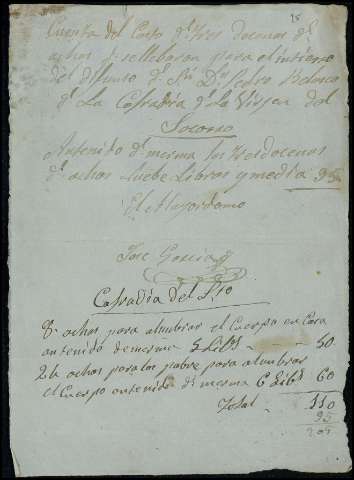 Cuenta del Costo de tres docenas de
achos q. se llebaron para el intierro
del difunto Dn Pedro Velasco
de La Cofradia de La Virjen del
Socorro
Antenido de merma las tres docenas
de achos nuebe Libras y media 95
El Mayordomo
Jose Garcia
Cofradia del Smo
8 achos para alumbrar el Cuerpo en Casa
antenido de merma 5 Libs 50
24 achos para los pobres para alumbrar
el Cuerpo antenido de merma 6 Libs 60
Total 110
95
205